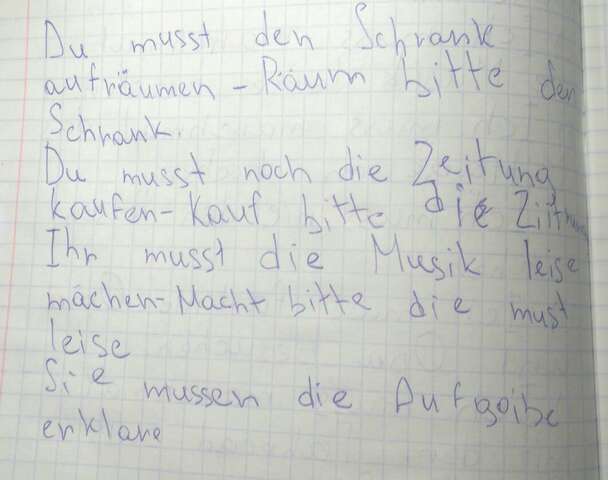 Du musst den Schrank
aufräumen - Räum bitte den
Schrank.
Du musst noch die Zeitung
kaufen - Kauf bitte die
Ihr musst die Musik leise
machen - Macht bitte die must
leise
Sie mussen die Aufgaibe
erklare